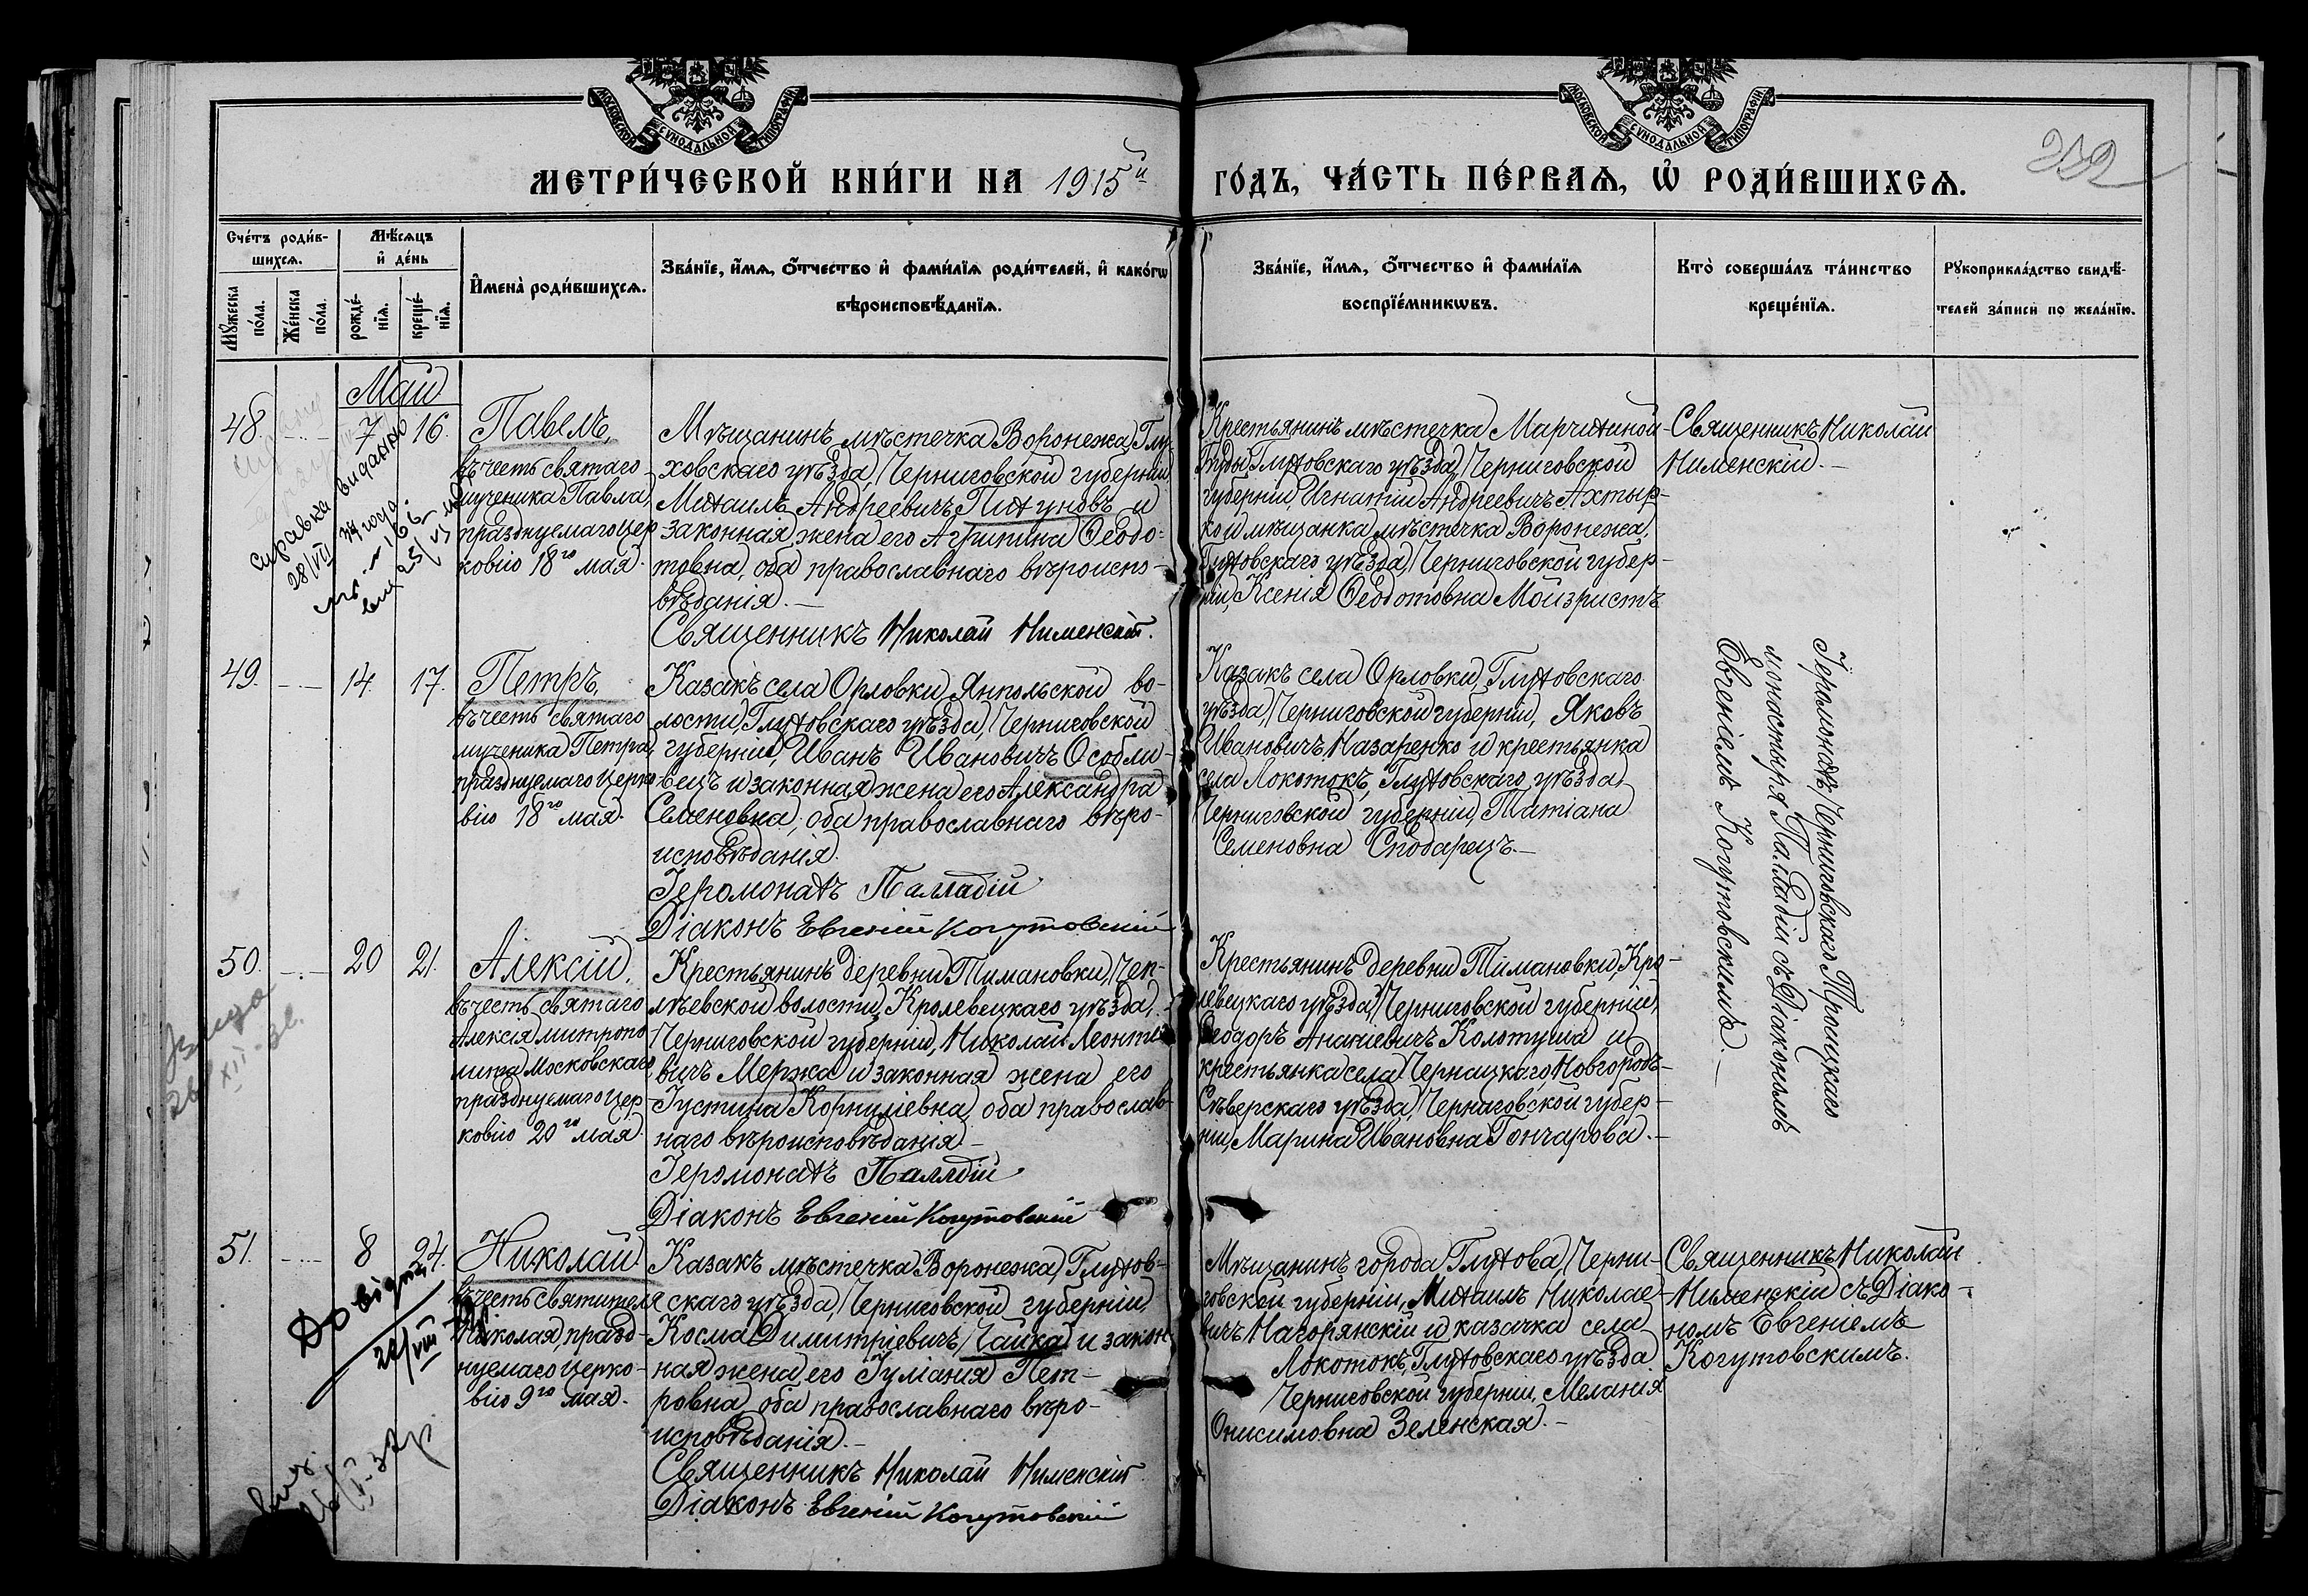 МОСКОВСКОЙ СѴНОДАЛЬНОЙ ТИПОГРАФІИ
МОСКОВСКОЙ СѴНОДАЛЬНОЙ ТИПОГРАФІИ
МЕТРИ́ЧЕСКОЙ КНИ́ГИ НА 1915й
ГО́ДЪ, ЧА́СТЬ ПЕ́РВАѦ, Ѡ҆ РОДИ́ВШИХСѦ.
Сче́тъ роди́в-
шихсѧ.
Мꙋ́жеска
по́ла.
Же́нска
по́ла.
Мѣ́сѧцъ
и҆ де́нь
рожде́-
нїѧ.
креще́-
нїѧ.
И҆мена̀ роди́вшихсѧ.
Зва́нїе, и҆́мѧ, ѻ҆́тчество и҆ фами́лїѧ роди́телей, и҆ како́гѡ
вѣроисповѣ́данїѧ.
Зва́нїе, и҆́мѧ, ѻ҆́тчество и҆ фами́лїѧ
воспрїе́мникѡвъ.
Кто̀ соверша́лъ та́инство
креще́нїѧ.
Рꙋкоприкла́дство свидѣ́-
телей за́писи по жела́нїю.
Май
48. 7 16.
Павелъ,
въ честь святаго
мученика Павла,
празднуемаго цер
ковію 18го мая.
Мѣщанинъ мѣстечка Воронежа, Глу-
ховскаго уѣзда, Черниговской губерніи,
Михаилъ Андреевичъ Пихуновъ и
законная жена его Агрипина Ѳеодо-
товна, оба православнаго вѣроиспо-
вѣданія.—
Священникъ Николай Нименскій.
Крестьянинъ мѣстечка Марчихиной-
Буды, Глуховскаго уѣзда, Черниговской
губерніи, Игнатій Андреевичъ Ахтыр-
кой мѣщанка мѣстечка Воронежа,
Глуховскаго уѣзда, Черниговской губер-
ніи, Ксенія Ѳеодотовна Мойзристъ
Священникъ Николай
Нименскій.—
справка видана
28/VII
49. 14. 17.
Петръ,
въ честь святаго
мученика Петра,
празднуемаго церко-
вію 18го мая.
Казакъ села Орловки, Янпольской во-
лости, Глуховскаго уѣзда, Черниговской
губерніи, Иванъ Ивановичъ Особли-
вецъ и законная жена его Александра
Семеновна, оба православнаго вѣро-
исповѣданія.
Іеромонахъ Палладій
Діаконъ Евгеній Когутовскій
Казакъ села Орловки, Глуховскаго
уѣзда, Черниговской губерніи, Яковъ
Ивановичъ Назаренко и крестьянка
села Локотокъ, Глуховскаго уѣзда,
Черниговской губерніи, Татіана
Семеновна Сподарецъ.—
Іеромонахъ Черниговскаго Троицкаго
монастыря Палладій съ Діакономъ
Евгеніемъ Когутовскимъ.—
50. 20 21.
Алексій,
въ честь святаго
Алексія митропо
лита Московскаго,
празднуемаго цер-
ковію 20го мая.
Крестьянинъ деревни Тимановки, Чеп-
лѣевской волости, Кролевецкаго уѣзда,
Черниговской губерніи, Николай Леонтье
вичъ Мержа и законная жена его
Іустина Корниліевна, оба православ-
наго вѣроисповѣданія.—
Іеромонахъ Палладій
Діаконъ Евгеній Когутовскій
Крестьянинъ деревни Тимановки, Кро-
левецкаго уѣзда, Черниговской губерніи,
Ѳеодоръ Ананіевичъ Колотуша и
крестьянка села Чернацкаго Новгородъ-
Сѣверскаго уѣзда, Черниговской губер-
ніи, Марина Ивановна Гончарова.—
51. 8 24.
Николай
въ честь святителя
Николая, празд-
нуемаго церко-
вію 9го мая.
Казакъ мѣстечка Воронежа, Глухов-
скаго уѣзда, Черниговской губерніи,
Косма Димитріевичъ Чайка и закон
ная жена его Іуліанія Пет-
ровна, оба православнаго вѣро-
исповѣданія.—
Священникъ Николай Нименскій
Діаконъ Евгеній Когутовскій
Мѣщанинъ города Глухова, Черни-
говской губерніи, Михаилъ Николае-
вичъ Нагорянскій и казачка села
Локотокъ, Глуховскаго уѣзда
Черниговской губерніи, Меланія
Онисимовна Зеленская.—
Священникъ Николай
Нименскій съ Діако-
номъ Евгеніемъ
Когутовскимъ.